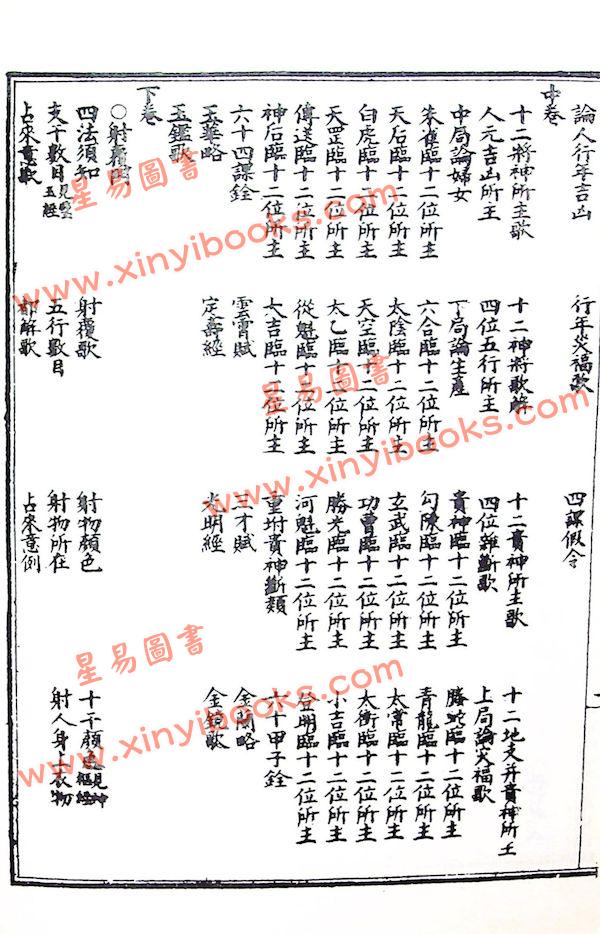 論人行年吉凶 行年災福歌 四課假令
中卷
十二將神所主歌 十二神將歌解 十二貴神所主歌 十二地支并貴神所主
人元吉凶所主 四位五行所主 四位雜斷歌 上局論災福歌
中局論婦女 下局論生產 貴神臨十二位所主 螣蛇臨十二位所主
朱雀臨十二位所主 六合臨十二位所主 勾陳臨十二位所主 青龍臨十二位所主
天后臨十二位所主 太陰臨十二位所主 玄武臨十二位所主 太常臨十二位所主
白虎臨十二位所主 天空臨十二位所主 功曹臨十二位所主 太衝臨十二位所主
天罡臨十二位所主 太乙臨十二位所主 勝光臨十二位所主 小吉臨十二位所主
傳送臨十二位所主 從魁臨十二位所主 河魁臨十二位所主 登明臨十二位所主
神后臨十二位所主 大吉臨十二位所主 重坿貴神斷類 六十甲子銓
六十四課銓 雲霄賦 三才賦 金蘭略
玉華略 定壽經 光明經 金鏡歌
玉鑑歌
下卷
○射覆門
四法須知 射覆歌 射物顏色 十干顏色見神樞經
支干數目見 玉經 五行數目 射物所在 射人身上衣物
占來意歌 都解歌 占來意例
星易圖書
www.xinyibooks.com
星易圖書
www.xinyibooks.com
星易圖書
www.xinyibooks.com